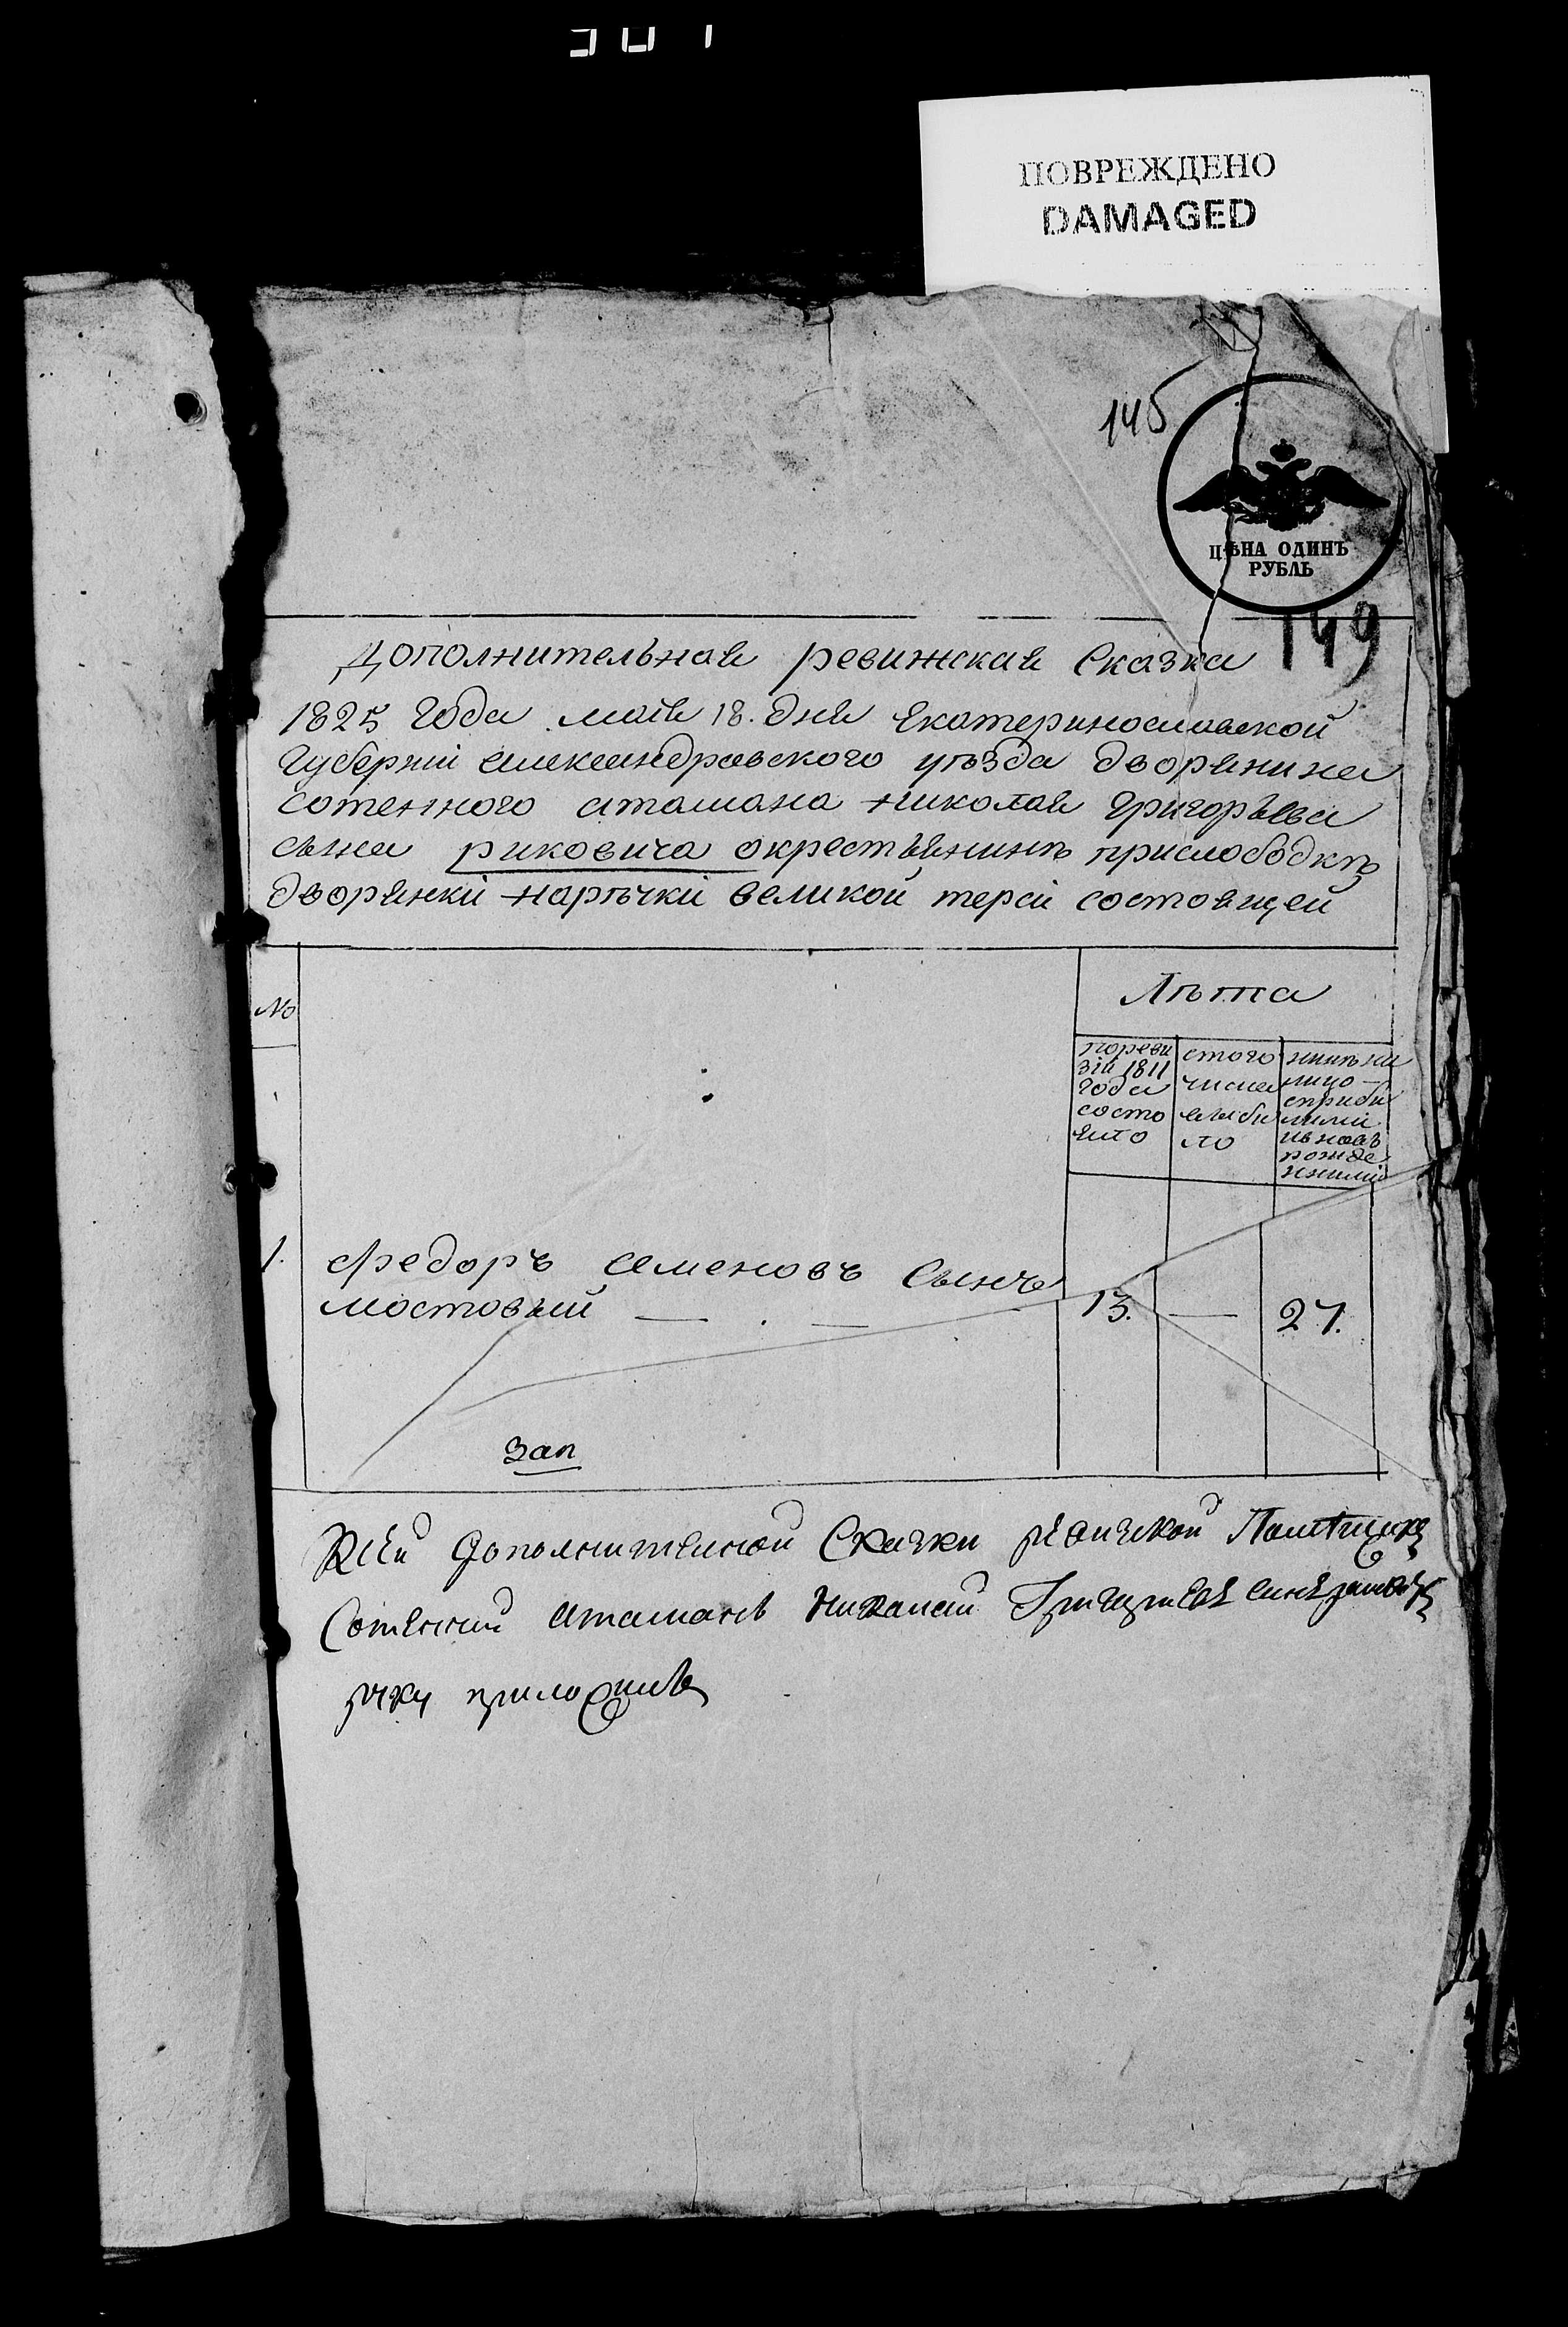 ПОВРЕЖДЕНО
DAMAGED
145
ЦѢНА ОДИНЪ
РУБЛЬ
149
Дополнительная ревижская Сказка
1825 года мая 18. дня Екатеринославской
Губерніи александравского уѣзда дворянина
сотенного атамана николая Григорьева
сына риковича окрестьянинѣ прислободкѣ
дворянки нарѣчки великой терси состоящей
№
Лѣта
пореви
зіи 1811
года
состо
яло
стого
числа
выби
ло
ннѣ на
лицо
сприби
лими
ивновь
рожде
нними
1. Федоръ Семеновъ Сынъ
мостовый — . — 13. — 27.
зап
Ксей дополнителной Скаски Помѣщикъ
Сотенний атаманъ Николай
руку приложилъ